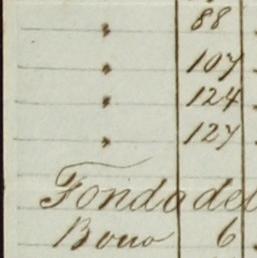 " 88
" 107
" 124
" 127
Fonda del
Bono 6